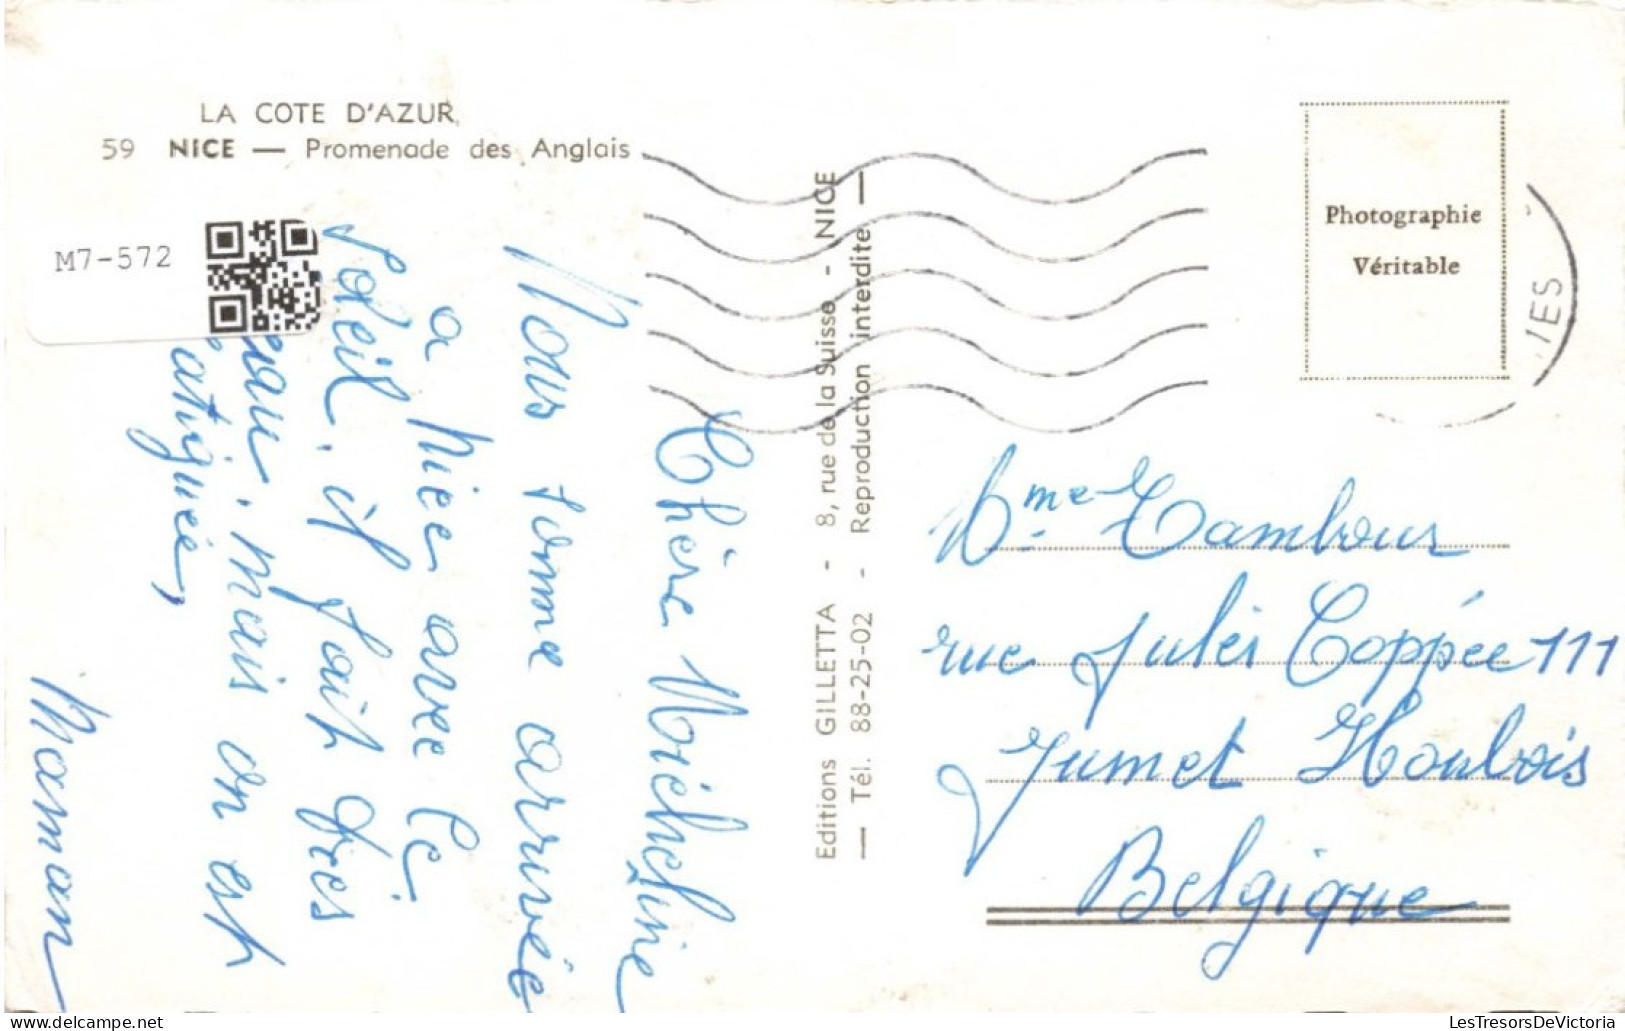 LA COTE D'AZUR
59 NICE — Promenade des Anglais
M7-572
Chère Micheline
Nous somme arrivée
a Nice avec le
soleil, il fait tres
eau, mais on est
atiguée,
Maman
Editions GILLETTA - 8, rue de la Suisse - NICE
— Tél. 88-25-02 - Reproduction interdite —
Photographie
Véritable
IES
Mme Tambour
rue Jules Coppée 111
Jumet Houbois
Belgique
LesTresorsDeVictoria